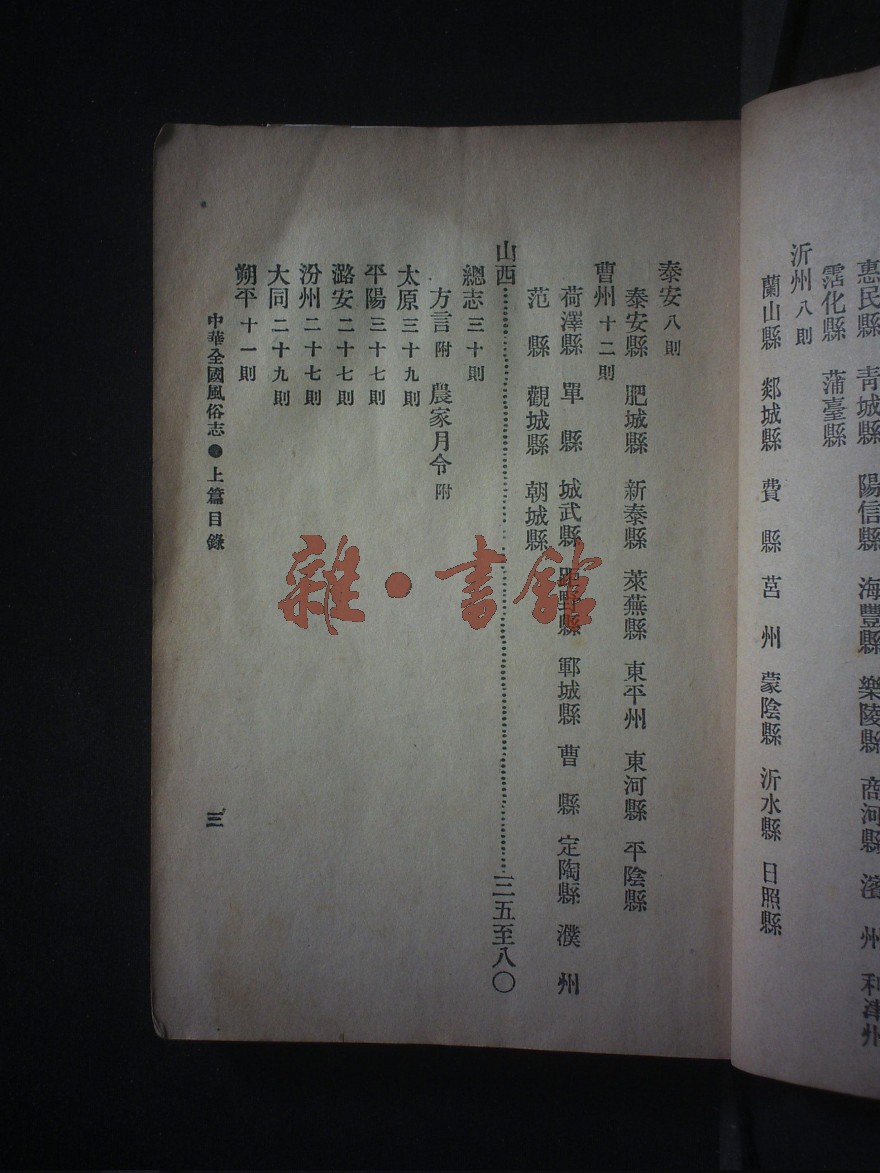 惠民縣 青城縣 陽信縣 海豐縣 樂陵縣 商河縣 濱 州 利津州
霑化縣 蒲臺縣
沂州 八則
蘭山縣 郯城縣 費 縣 莒 州 蒙陰縣 沂水縣 日照縣
泰安 八則
泰安縣 肥城縣 新泰縣 萊蕪縣 東平州 東河縣 平陰縣
曹州 十二則
荷澤縣 單 縣 城武縣 鉅野縣 鄆城縣 曹 縣 定陶縣 濮 州
范 縣 觀城縣 朝城縣
山西……三五至八〇
總志 三十則
方言 附 農家月令 附
太原 三十九則
平陽 三十七則
潞安 二十七則
汾州 二十七則
大同 二十九則
朔平 十一則
中華全國風俗志 ● 上篇目錄 三
雜·書館